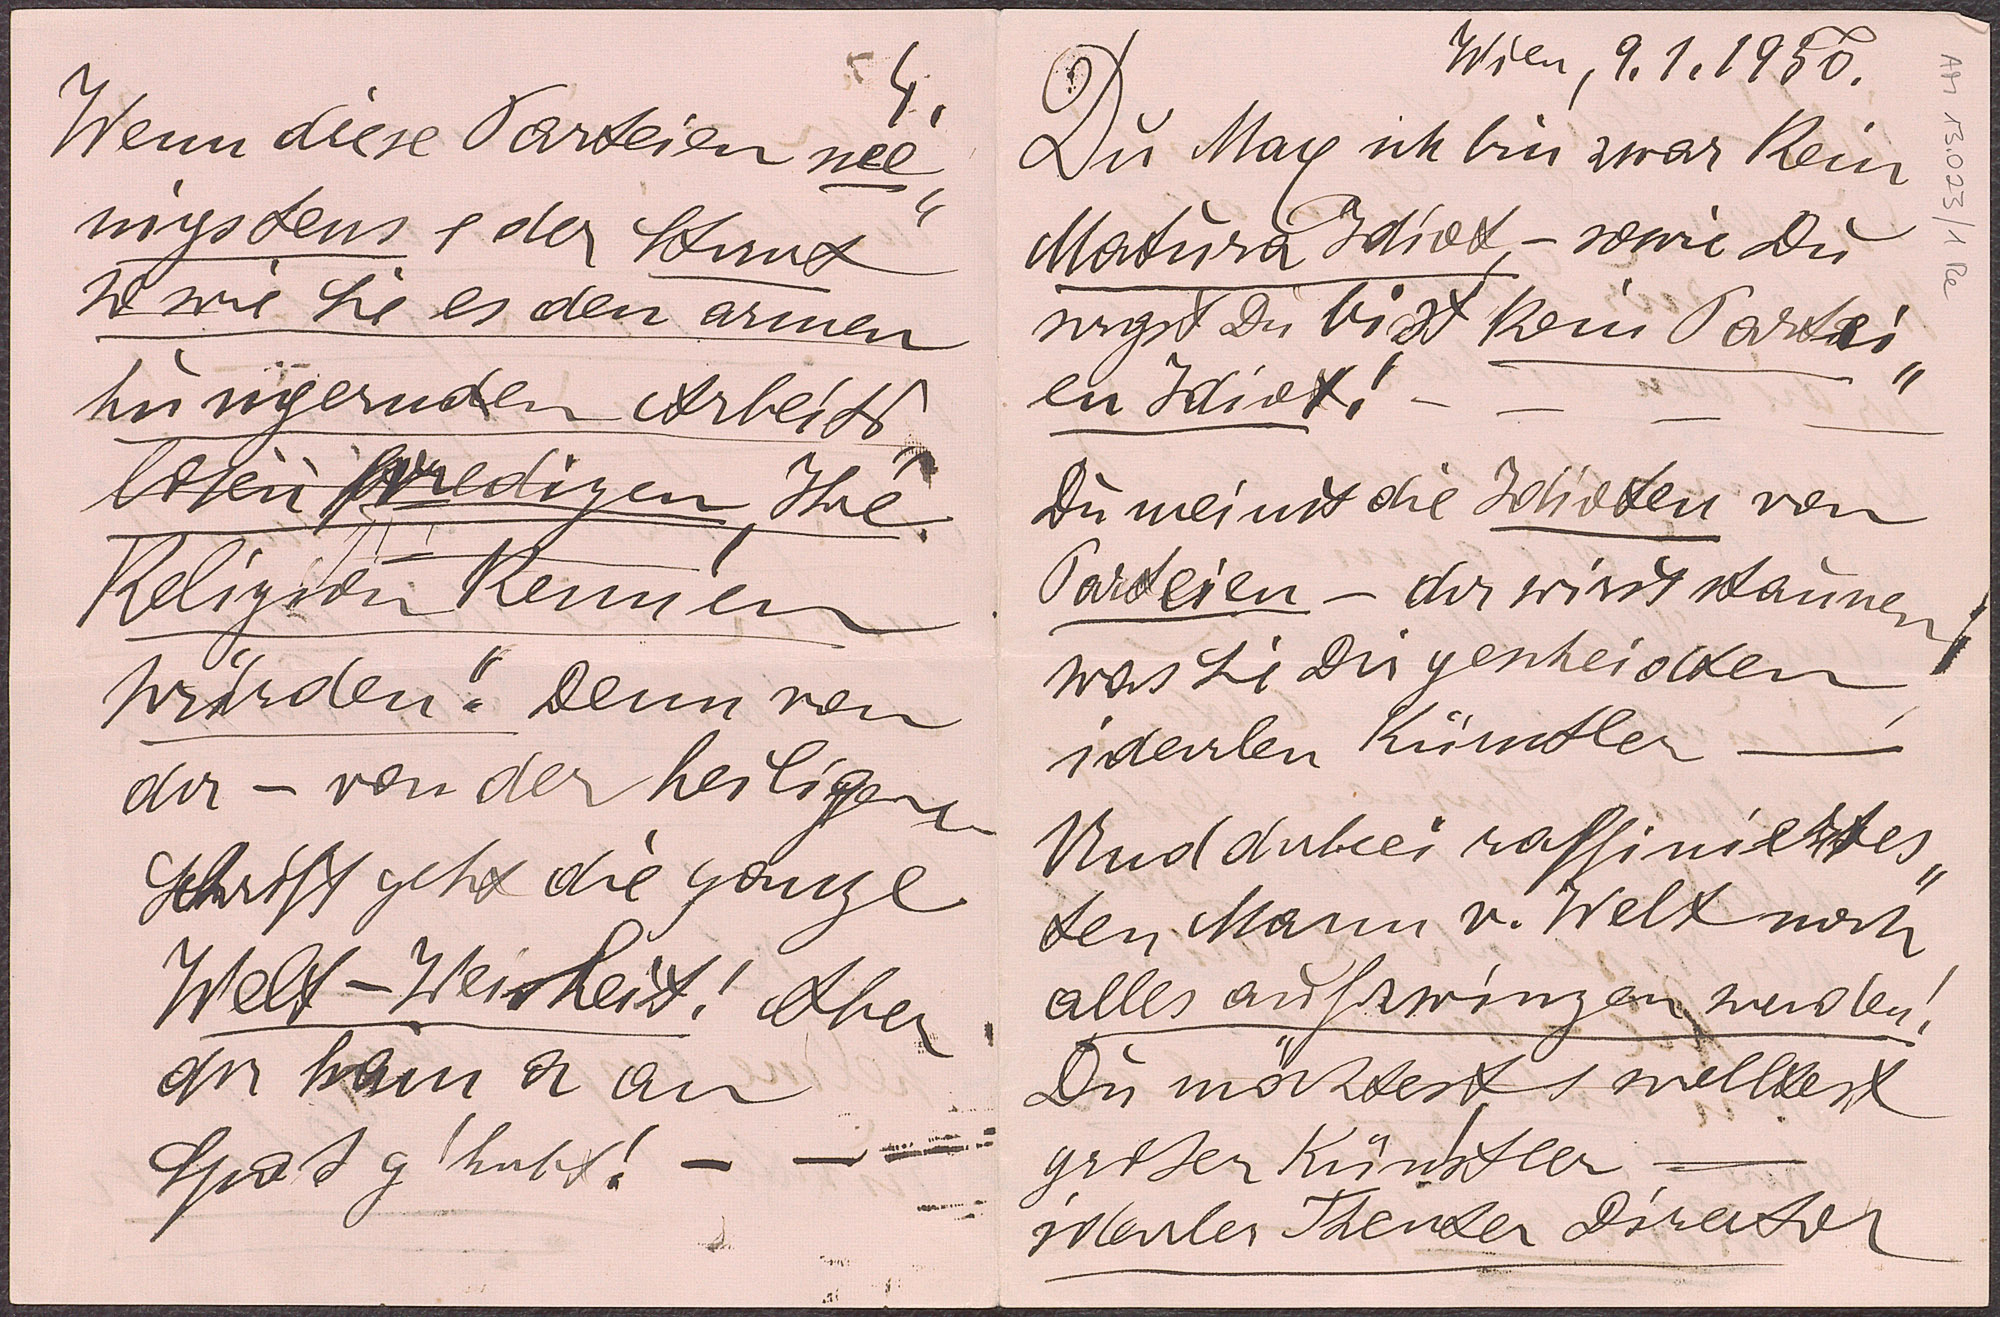 Wien, 9.1.1950.
Du Max ich bin zwar Kein
Matura Idiot, – sowie Du
sagst Du bist Kein Partei„
en Idiot! – – – –
Du meinst die Idioten von
Parteien – da wirst staunen!
was Sie Dir gescheidten
idealen Künstler –
Und dabei raffiniertes„
ten Mann v. Welt noch
alles aufzwingen werden!
Du möchtest, wolltest
großer Künstler –
idealer Theater Director
4.
Wenn diese Parteien we„
nigstens, der Staat
so wie Sie es den armen
hungernden Arbeits
losen predigen, Ihre
Religion Kennen
würden". Denn von
da – von der heiligen
Schrift geht die ganze
Welt – Weisheit! Aber
da ham s an
Spaß g'habt! – – –
AN 13.023/1